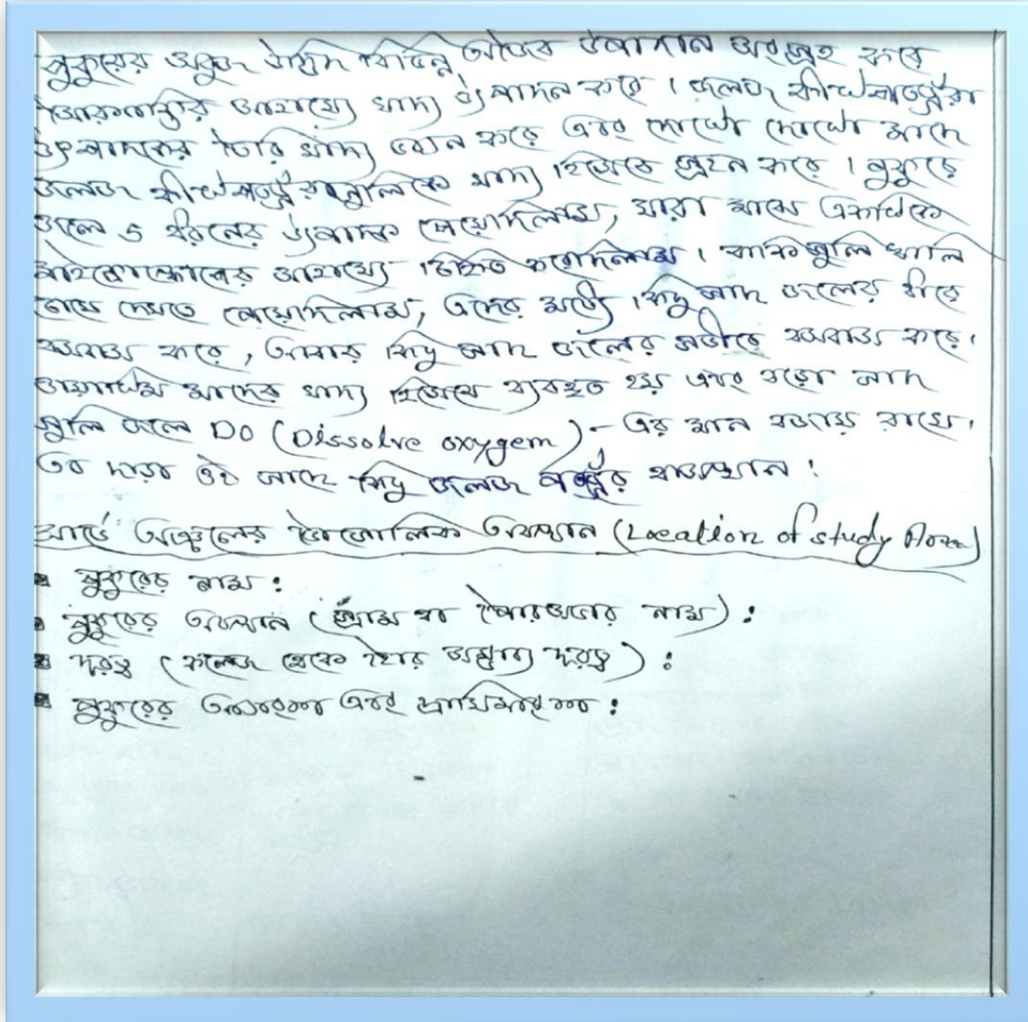 পুকুরের সবুজ উদ্ভিদ বিভিন্ন অজৈব উপাদান সংগ্রহ করে
সাহায্যে খাদ্য উৎপাদন করে । জলজ কীটপতঙ্গরা
উৎপাদকের তৈরি খাদ্য ভক্ষন করে এবং ছোটো ছোটো মাছে
জলজ কীটপতঙ্গগুলিকে খাদ্য হিসেবে গ্রহন করে । পুকুরে
জলে ৫ ধরনের উৎপাদক পেয়েছিলাম, যারা মধ্যে একটিকে
মাইক্রোস্কোপের সাহায্যে চিহ্নিত করেছিলাম । বাকিগুলি খালি
চোখে দেখতে পেয়েছিলাম, এদের মধ্যে কিছু গাছ জলের ধারে
বসবাস করে, আবার কিছু গাছ জলের গভীরে বসবাস করে।
মাছের খাদ্য হিসেবে ব্যবহৃত হয় এবং বড়ো গাছ
গুলি জলে DO (Dissolve oxygem)- এর মান বজায় রাখে।
এর ছাড়া ওই গাছে কিছু জলজ জন্তুর বাসস্থান।
সার্ভে অঞ্চলের ভৌগোলিক অবস্থান (Location of study Area)
▪ পুকুরের নাম :
▪ পুকুরের অবস্থান (গ্রাম বা পৌরসভার নাম) :
▪ দূরত্ব (কলেজ থেকে তার সম্ভাব্য দূরত্ব) :
▪ পুকুরের অক্ষাংশ এবং দ্রাঘিমাংশ :